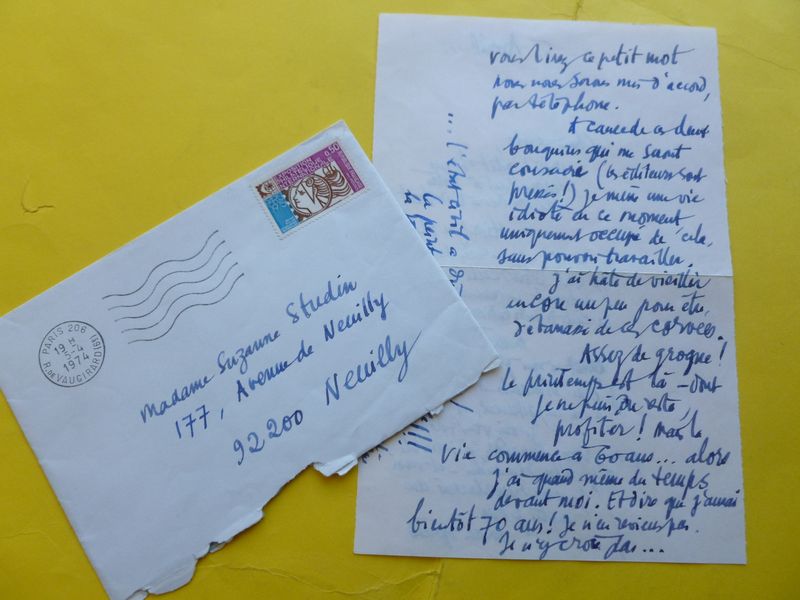 PARIS 206
R. DE VAUGIRARD (6)
19 H
5-4
1974
0,50
Madame Suzanne Studin
177, Avenue de Neuilly
92200 Neuilly
vous lirez ce petit mot
nous nous serons mis d'accord,
par téléphone.
A cause de ces deux
bouquins qui me sont
consacrés (les éditeurs sont
pressés!) je mène une vie
idiote en ce moment
uniquement occupé de cela,
sans pouvoir travailler.
J'ai hâte de vieillir
encore un peu pour être
débarrassé de ces corvées.
Assez de grogne!
Le printemps est là – dont
je ne puis, du reste,
profiter! mais la
vie commence à 60 ans... alors
j'ai quand même du temps
devant moi. Et dire que j'aurai
bientôt 70 ans! Je n'en reviens pas.
Je n'y crois pas...